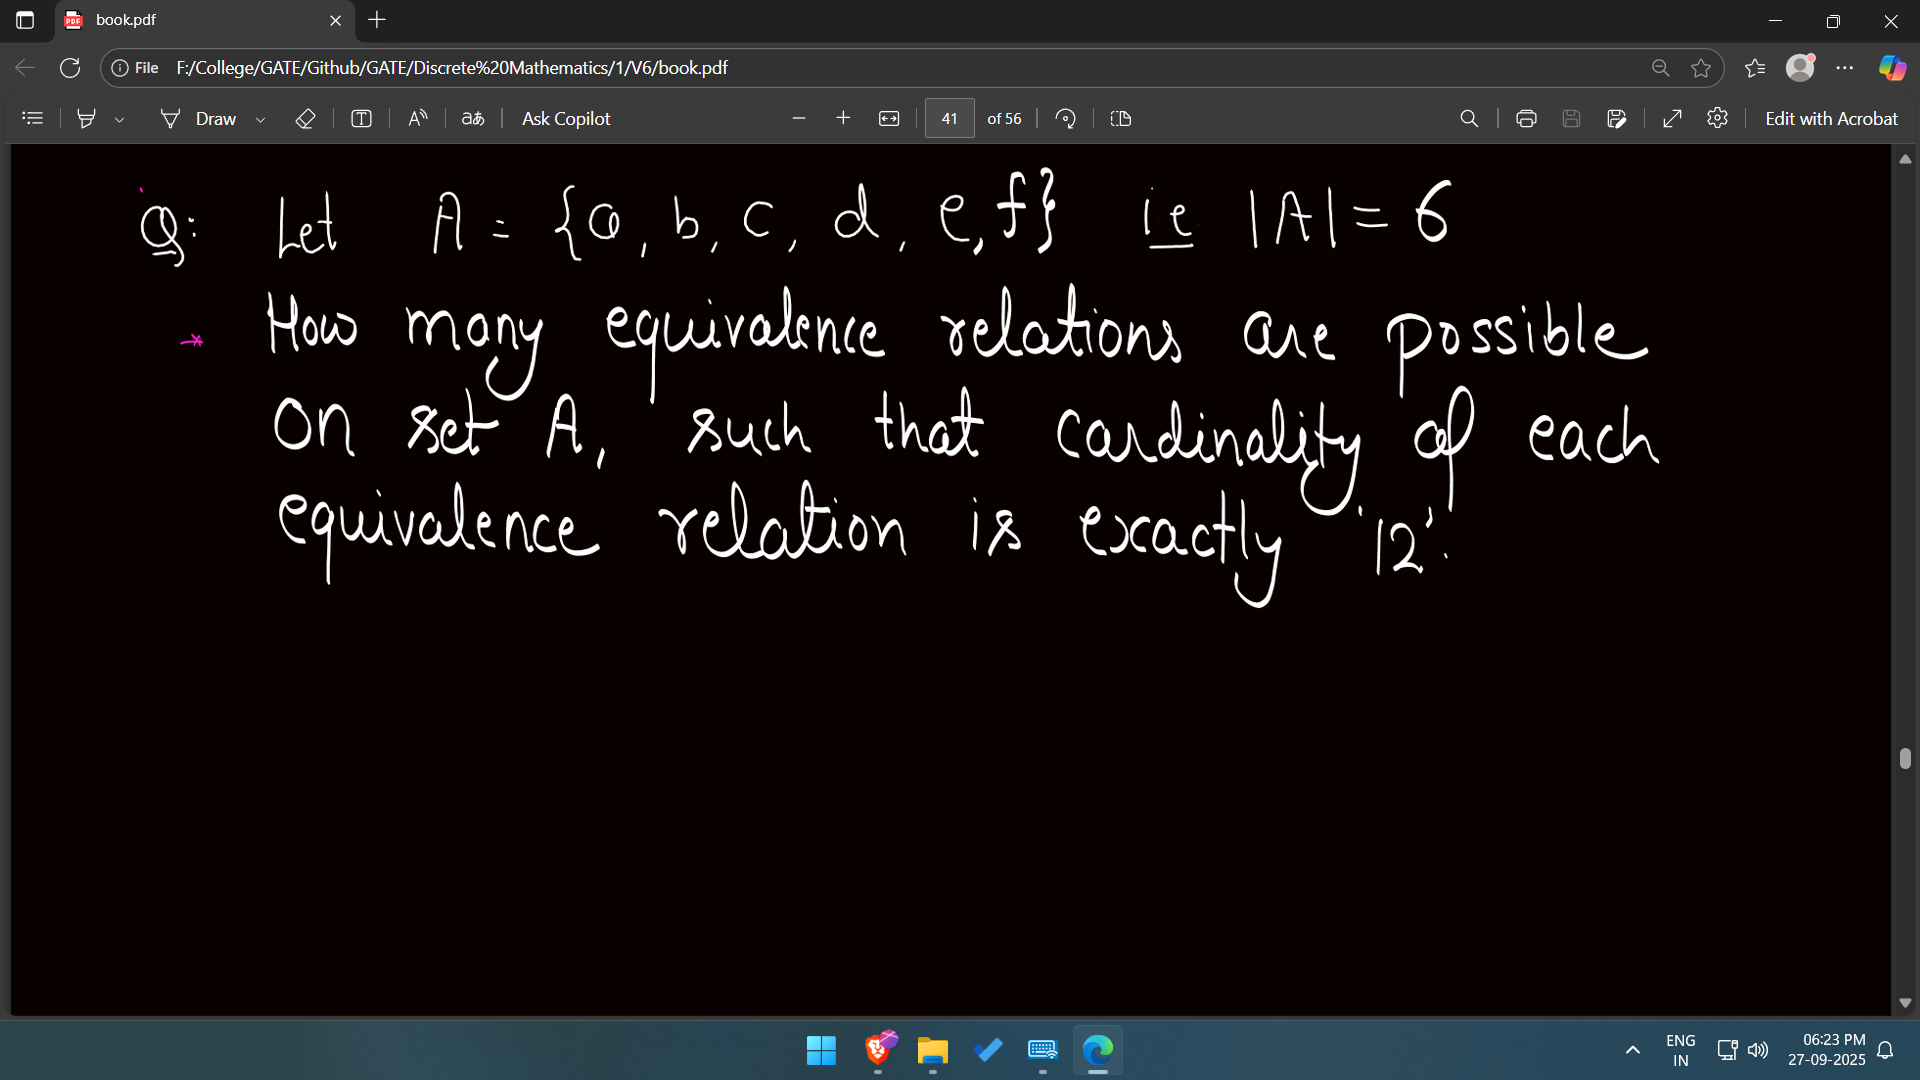 book.pdf
File F:/College/GATE/Github/GATE/Discrete%20Mathematics/1/V6/book.pdf
Draw
aあ
Ask Copilot
41 of 56
Edit with Acrobat
Q: Let A = {a, b, c, d, e, f} ie |A| = 6
How many equivalence relations are possible
on set A, such that cardinality of each
equivalence relation is exactly '12'.
ENG
IN
06:23 PM
27-09-2025